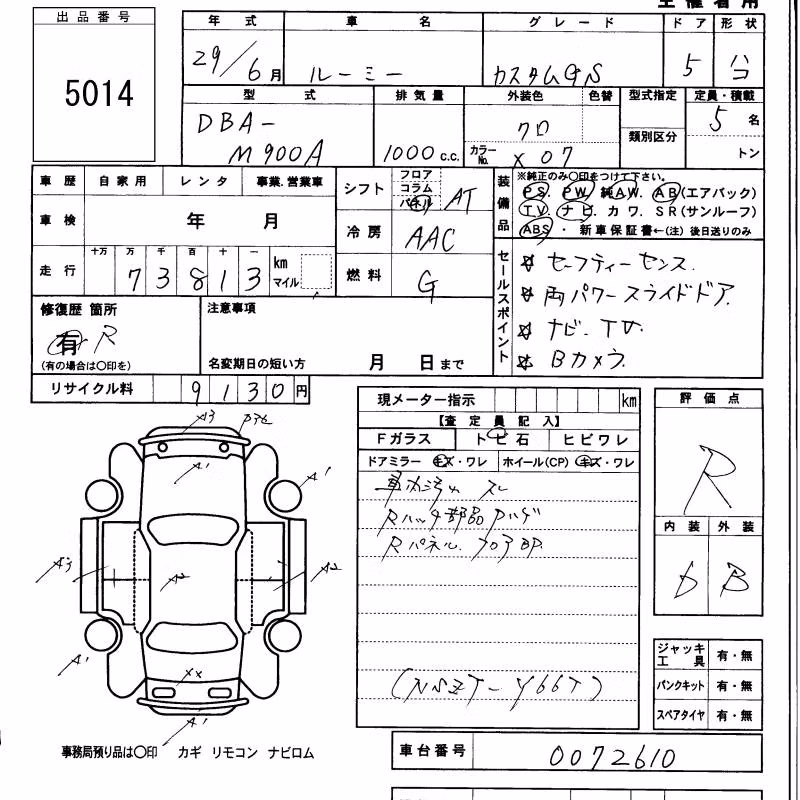 主催者用
出品番号
5014
年式 車名 グレード ドア 形状
29/6月 ルーミー カスタムGS 5 ハコ
型式 排気量 外装色 色替 型式指定 定員・積載
DBA-
M900A 1000c.c. クロ 類別区分 5名
カラーNo. X07 トン
車歴 自家用 レンタ 事業.営業車
シフト フロア コラム パネル AT
装備品
※純正のみ○印をつけて下さい。
PS. PW. 純AW. AB(エアバック)
TV. ナビ. カワ. SR(サンルーフ)
ABS ・ 新車保証書←(注)後日送りのみ
車検 年 月
冷房 AAC
走行 十万 万 千 百 十 一
73813 km マイル
燃料 G
セールスポイント
☆ セーフティーセンス.
☆ 両パワースライドドア.
☆ ナビ-TV.
☆ Bカメラ.
修復歴 箇所
有 R
(有の場合は○印を)
注意事項
名変期日の短い方 月 日まで
リサイクル料 9130円
現メーター指示 km
【査定員記入】
Fガラス トビ石 ヒビワレ
ドアミラー キズ・ワレ ホイール(CP) キズ・ワレ
Rハッチ部品ハゲ
Rパネル. フロアBP.
(NSZT-Y66T)
評価点
R
内装 外装
D B
A3
A1
A1
A1
A3
A2
A2
A1
XX
A1
ジャッキ工具 有・無
パンクキット 有・無
スペアタイヤ 有・無
事務局預り品は○印 カギ リモコン ナビロム
車台番号 0072610